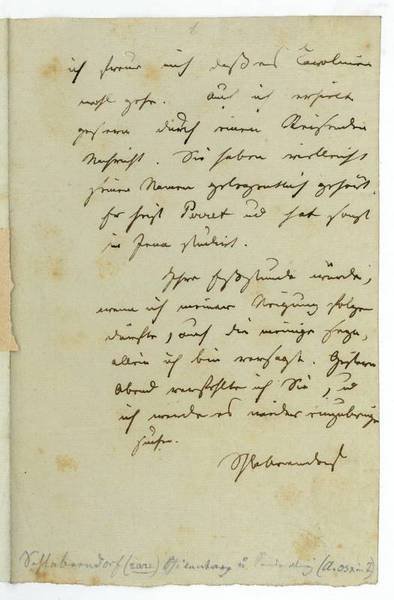 1
ich freue mich daß es Carolinen
wohl gehe. Auch ich erhielt
gestern durch einen Reisenden
Nachricht. Sie haben vielleicht
seinen Namen gelegentlich gehört.
Er heist Perret ud hat sonst
in Jena studirt.
Ihre Eßstunde würde,
wenn ich meiner Neigung folgen
dürfte, auch die meinige seyn,
allein ich bin versagt. Gestern
Abend verfehlte ich Sie, ud
ich werde es wieder einzubringen
suchen.
Schlabrendorf
Schlaberndorf (rare) Philanthrop u.